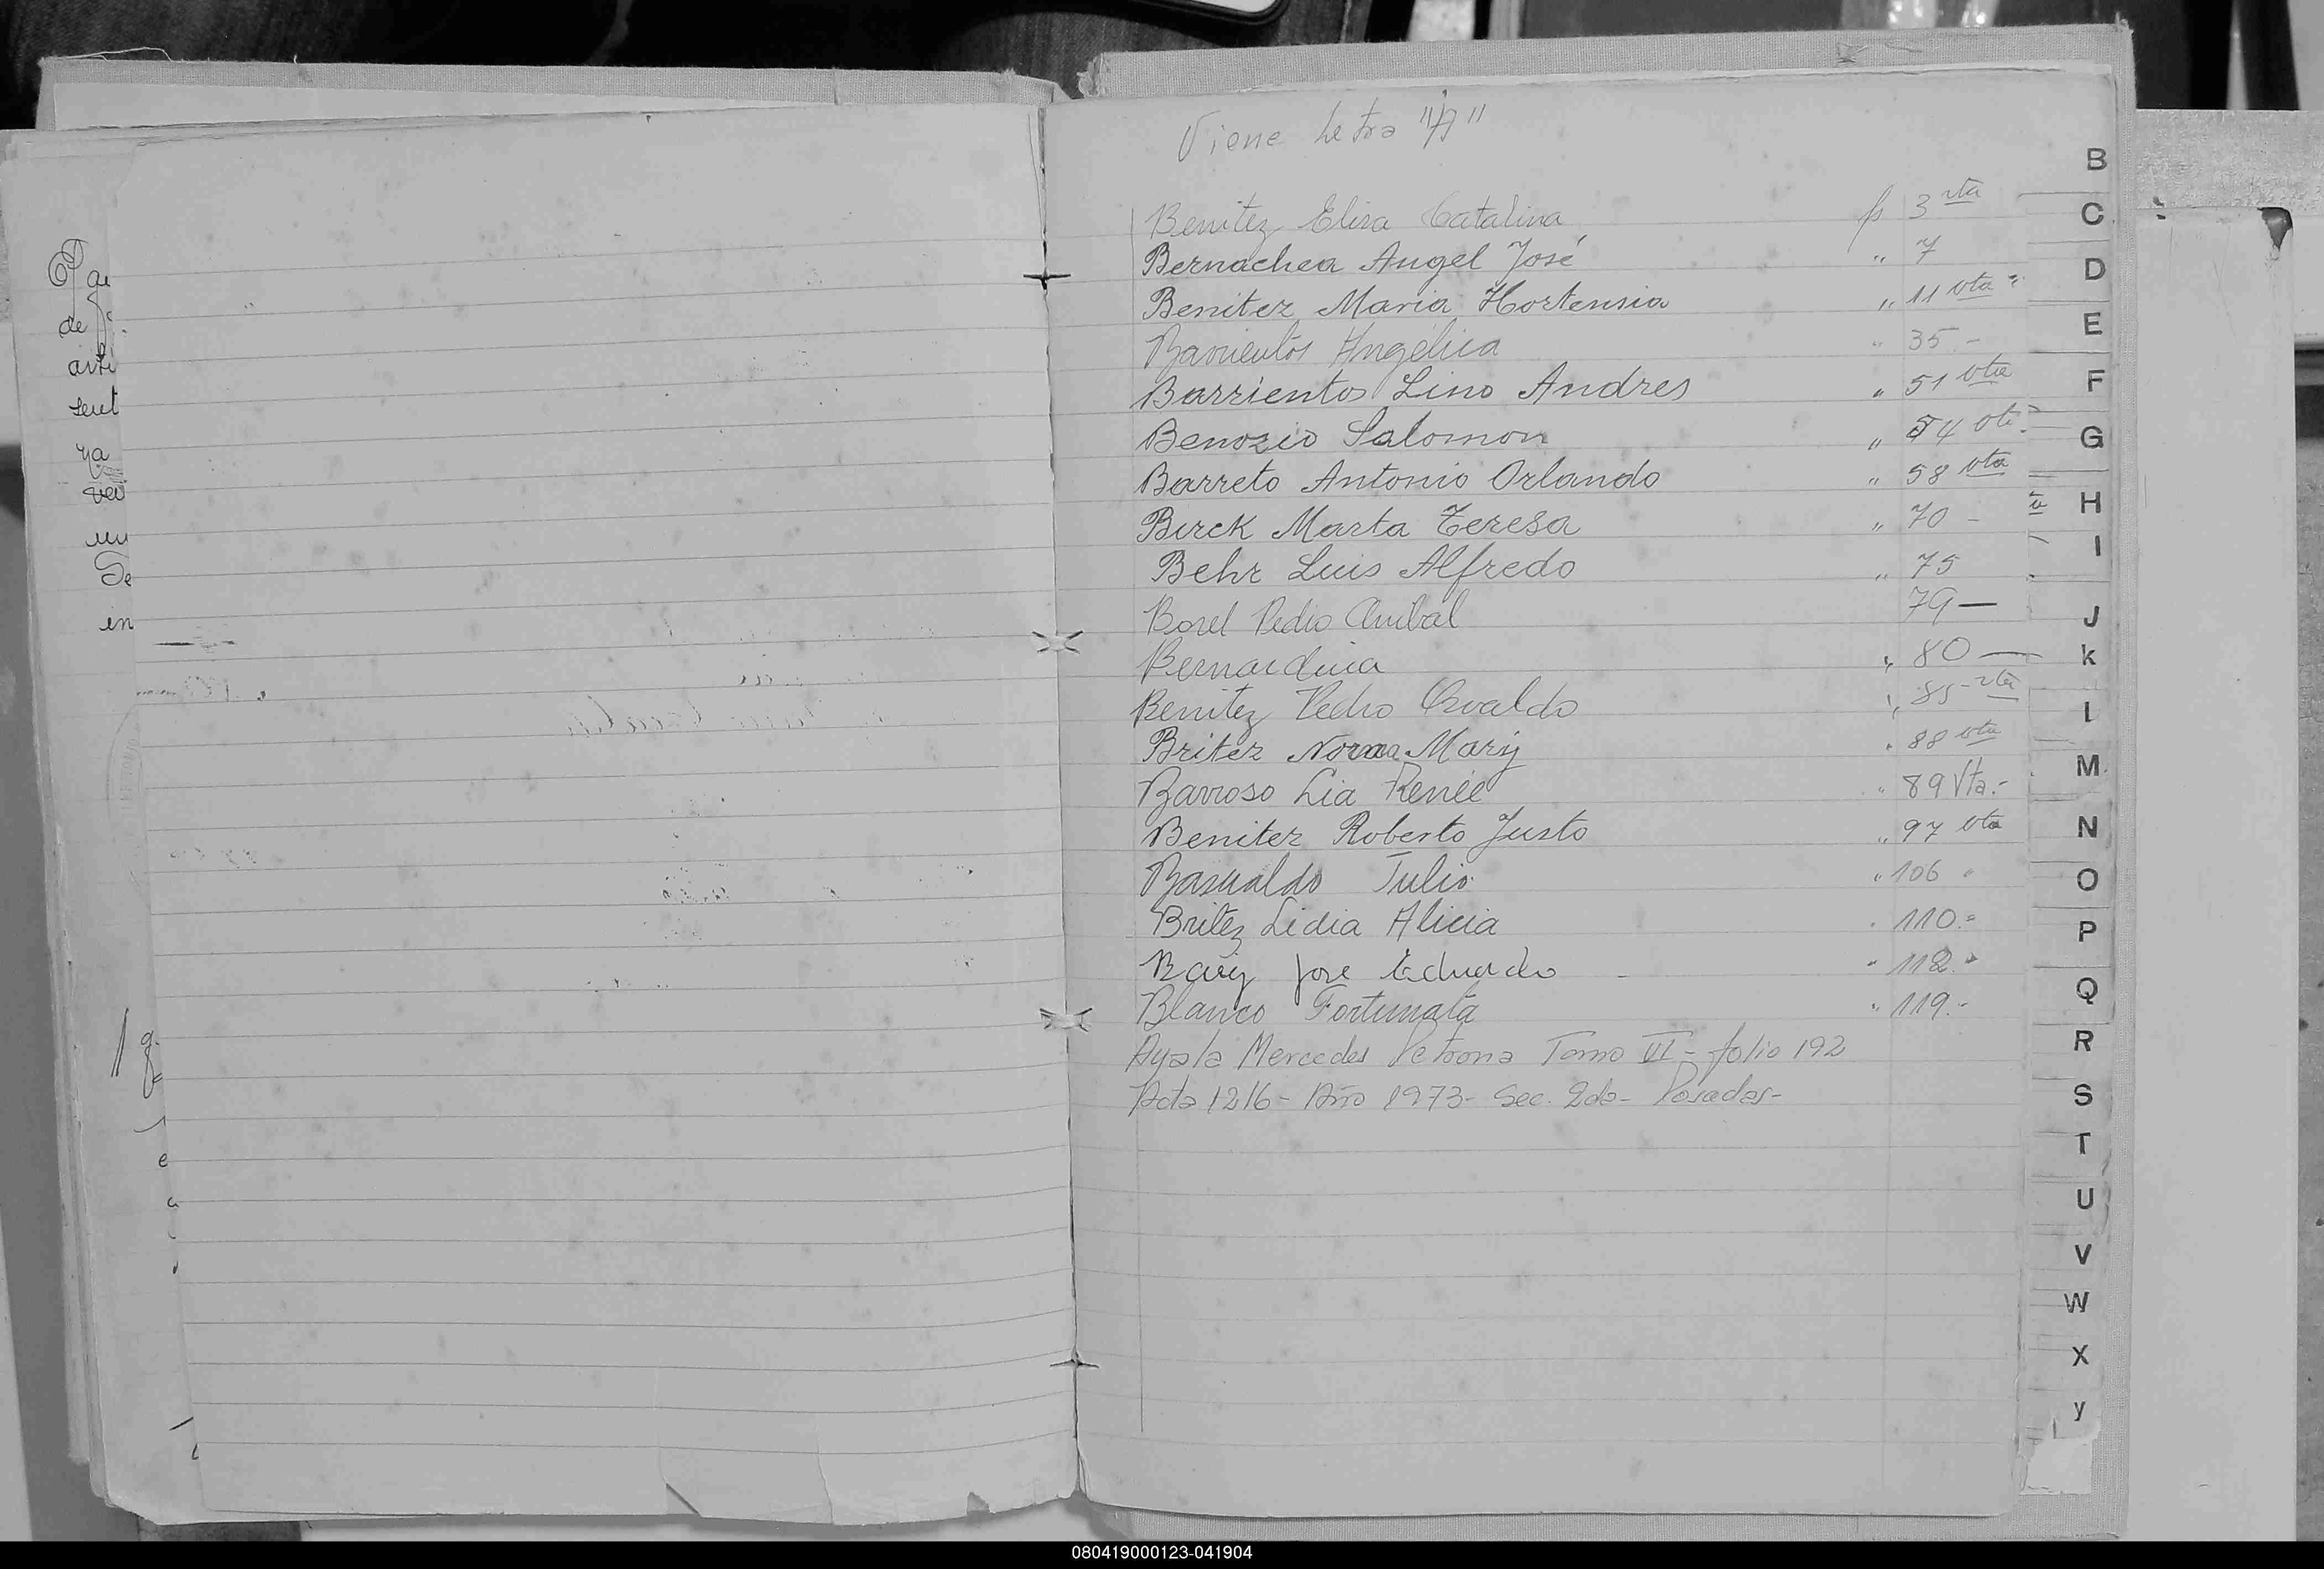 Viene Letra "A"
Benitez Elisa Catalina fs 3 vta
Bernachea Angel José " 7
Benitez Maria Hortensia " 11 vta =
Barrientos Angélica " 35 -
Barrientos Lino Andres " 51 vta
Benozio Salomon " 54 vta
Barreto Antonio Orlando " 58 vta
Birck Marta Teresa " 70 -
Behr Luis Alfredo " 75
Borel Pedro Anibal 79 —
Bernardina " 80 —
Benitez Pedro Osvaldo " 85 - vta
Britez Norma Mary " 88 vta
Barroso Lia Renée " 89 Vta.-
Benitez Roberto Justo " 97 vta
Basualdo Julio " 106 "
Britez Lidia Alicia " 110.=
José Eduardo - " 112.
Blanco Fortunata " 119.-
Ayala Mercedes Petrona Tomo VI - folio 192
Acta 1216 - Año 1973 - Sec. 2da - Posadas -
de
arti
sent
ra
ver
un
Se
en
B
C
D
E
F
G
H
I
J
k
l
M
N
O
P
Q
R
S
T
U
V
W
X
y
080419000123-041904